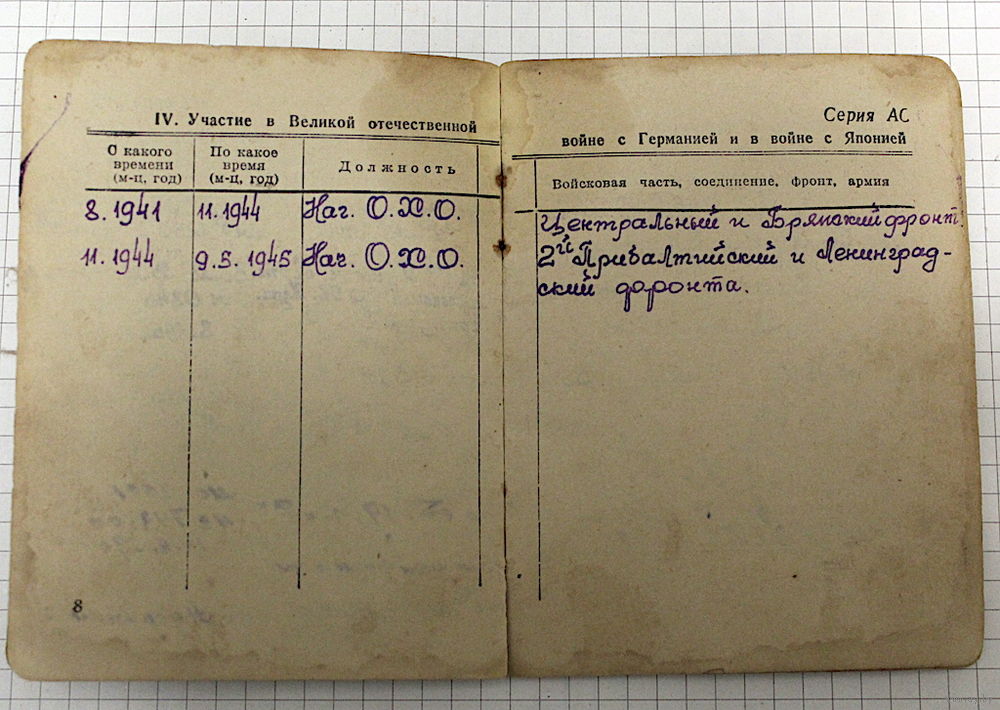 IV. Участие в Великой отечественной
С какого времени (м-ц, год)
По какое время (м-ц, год)
Должность
8.1941 11.1944 Нач. О.Х.О.
11.1944 9.5.1945 Нач. О.Х.О.
8
Серия АС
войне с Германией и в войне с Японией
Войсковая часть, соединение, фронт, армия
Центральный и Брянский фронт.
2й Прибалтийский и Ленинград-
ский фронта.